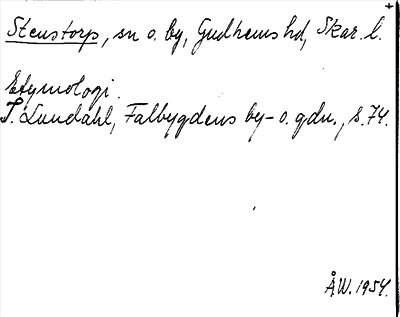 Stenstorp, sn o. by, Gudhems hd, Skar. l.
Etymologi.
I. Lundahl, Falbygdens by- o. gdn., s. 74.
ÅW. 1954.